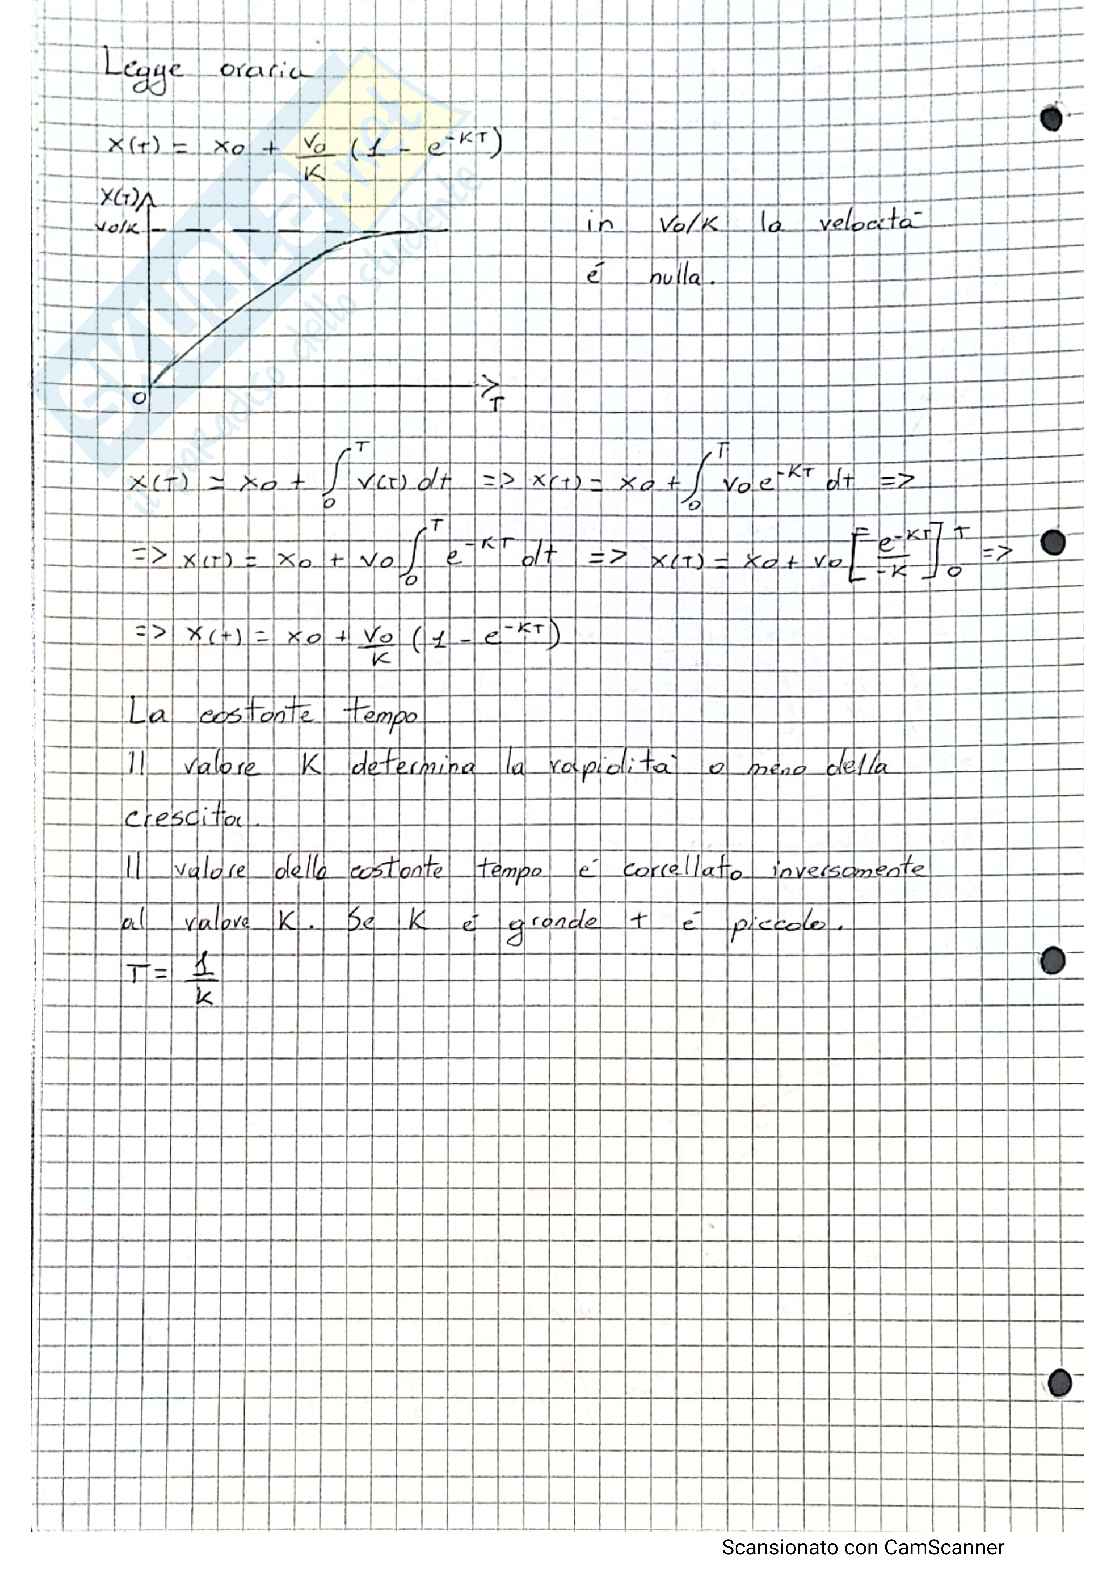 Legge oraria
x(T) = x0 + V0/K (1 - e^-KT)
X(T)
V0/K
in V0/K la velocità
é nulla.
0
T
x(T) = x0 + ∫0^T V(T) dt => x(T) = x0 + ∫0^T V0 e^-KT dt =>
=> x(T) = x0 + V0 ∫0^T e^-KT dt => x(T) = x0 + V0 [e^-KT/-K]0^T =>
=> x(t) = x0 + V0/K (1 - e^-KT)
La costante tempo
Il valore K determina la rapidità o meno della
crescita.
Il valore della costante tempo é correllato inversamente
al valore K. Se K é grande t é piccolo.
T = 1/K
SKUOLA.net
il paradiso dello studente
Scansionato con CamScanner